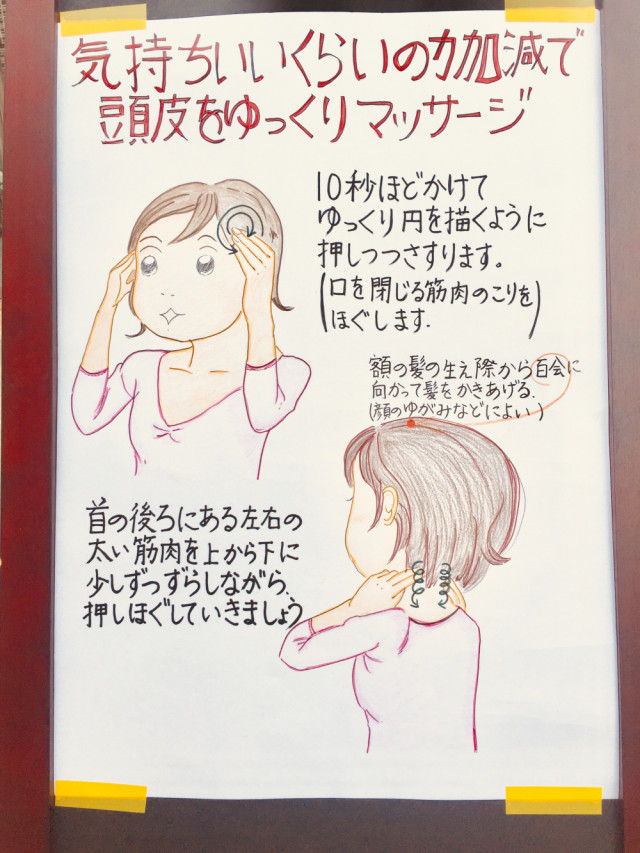 気持ちいいくらいの力加減で
頭皮をゆっくりマッサージ
10秒ほどかけて
ゆっくり円を描くように
押しつつさすります。
(口を閉じる筋肉のこりを
ほぐします.)
額の髪の生え際から百会に
向かって髪をかきあげる.
(顔のゆがみなどによい)
首の後ろにある左右の
太い筋肉を上から下に
少しずつずらしながら、
押しほぐしていきましょう